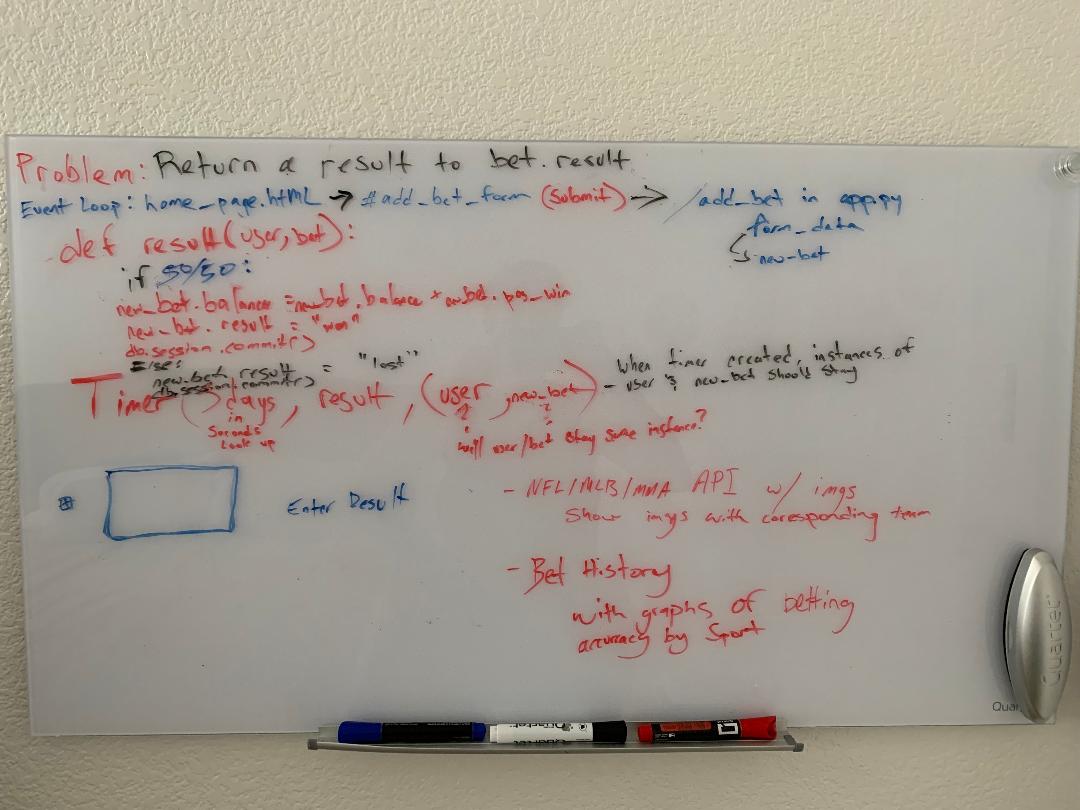 Problem: Return a result to bet.result
Event Loop: home_page.HTML → #add_bet_form (submit) → /add_bet in app.py
form_data
new-bet
def result(user, bet):
if 50/50:
new_bet.balance = newbet.balance + newbet.pos_win
new_bet.result = "won"
db.session.commit()
Else:
new_bet result = "lost"
db.session.commit()
Timer ( ) days, result, (user, new_bet)
in
Seconds
Look up
- When timer created, instances of
user & new_bet should stay
will user/bet stay same instance?
Enter Result
- NFL/MLB/MMA API w/ imgs
Show imgs with coresponding team
- Bet History
with graphs of betting
accuracy by Sport
Quartet
Quar
Quartet